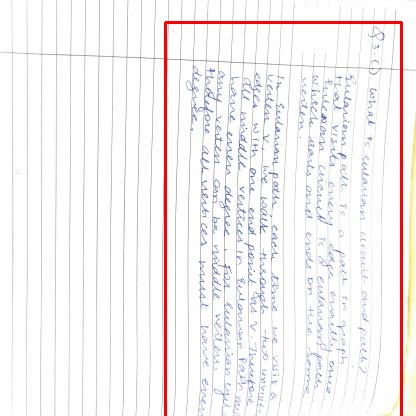 Q 3. (i) What is eularian circuit and path?
Eularian path is a path in graph
that visits every edge exactly once
Eulerian circuit is a eularian path
which starts and ends on the same
vertex.
In eularian path, each time we visit a
vertex v, we walk through two unvisi
edges with one end point as v. Therefore
all middle vertices in Eularian Path mu
have even degree. For Eularian cycle
any vertex can be middle vertex,
therefore all vertices must have even
degree.